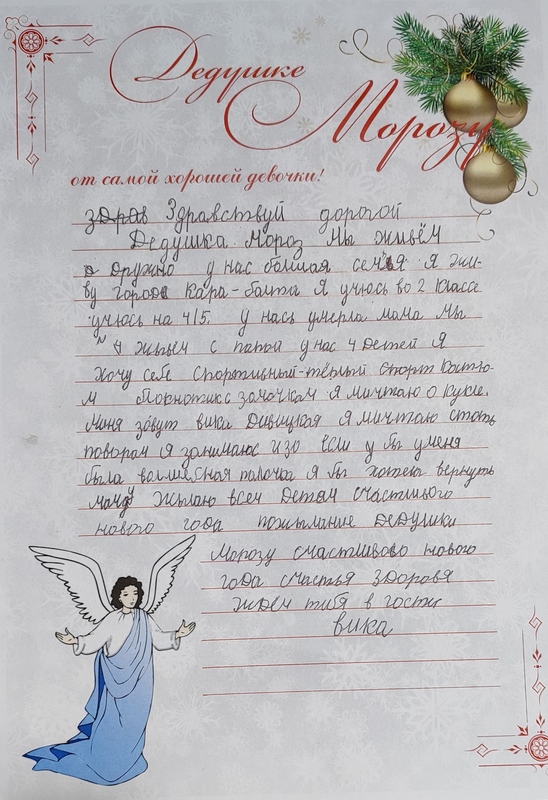 Дедушке
Морозу
от самой хорошей девочки!
здрав Здравствуй дорогой
Дедушка Мороз Мы живём
дружно у нас большая семья я жи-
ву город Кара-балта Я учюсь во 2 классе
учюсь на 4/5. у нась умерла мама мы
жывём с папой у нас 4 детей Я
хочу себе спортивный-тёплый спорт костю-
м блокнотик с замочком я мичтаю о кукле.
Миня завут вика Я мичтаю стать
поваром Я занимаюс изо если у бы у меня
была волшебная палочка я бы хотела вернуть
маму жылаю всем детям счастливого
нового года пожылание дедушки
Морозу счастливово нового
года счастья здоровя
ждём тибя в гости
вика